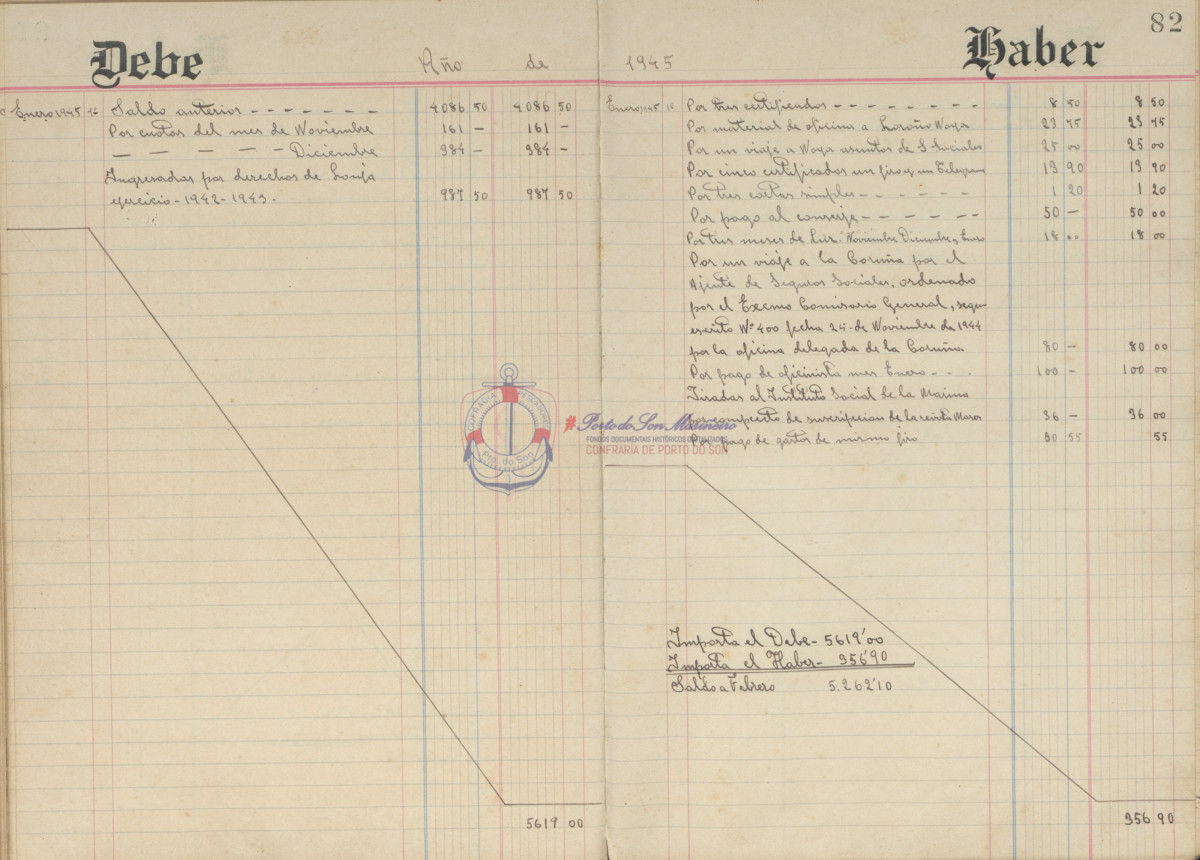 82
Debe
Año de 1945
Haber
Enero 1945 Saldo anterior - - - - - - - 4086 50 4086 50
Por cuotas del mes de Noviembre 161 — 161 —
— — — — — Diciembre 384 — 384 —
Ingresadas por derechos de Lonja
ejercicio - 1942 - 1943. 987 50 987 50
5619 00
Enero 1945 Por tres certificados - - - - - - - - 8 50 8 50
Por material de oficina a Noya 23 75 23 75
Por un viaje a Noya asuntos de S Sociales 25 00 25 00
Por cinco certificados un giro y un Telegram 13 90 13 90
Por tres cartas simples - - - - - - 1 20 1 20
Por pago al conserje - - - - - - 50 — 50 00
Por tres meses de Luz. Noviembre Diciembre y Enero 18 00 18 00
Por un viaje a la Coruña por el
Ajente de Seguros Sociales, ordenado
por el Excmo Comisario General, segun
escrito Nº 400 fecha 25 de Noviembre de 1944
por la oficina delegada de la Coruña. 80 — 80 00
Por pago de oficinista mes Enero - - . 100 — 100 00
Tiradas al Instituto Social de la Marina
por compecto de suscripcion de la revista Mares 36 — 36 00
Por pago de gastos de mismo giro 00 55 55
Importa el Debe - 5619'00
Importa el Haber - 356'90
Saldo a Febrero 5.262'10
356 90
COFRADIA PESCADORES
Pto. do Son
#PortodoSon Mariñeiro
FONDOS DOCUMENTAIS HISTÓRICOS DIXITALIZADOS
CONFRARÍA DE PORTO DO SON